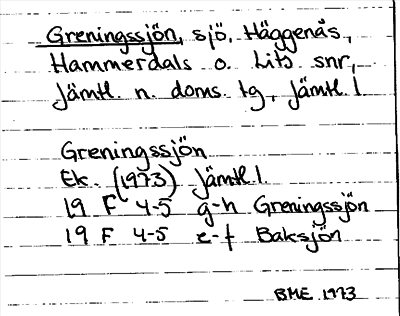 Greningssjön, sjö, Häggenås,
Hammerdals o. Lits snr,
Jämtl. n. doms. tg, Jämtl. l.
Greningssjön
Ek. (1973) Jämtl. l.
19 F 4-5 g-h Greningssjön
19 F 4-5 e-f Baksjön
BME 1973